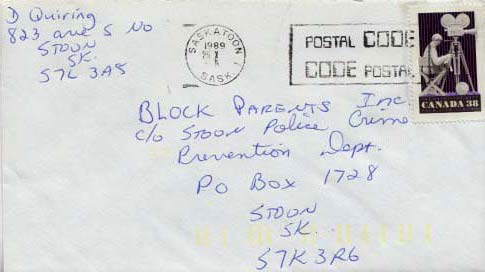 D Quiring
823 ave S No
STOON
SK.
S7L 3A8
SASKATOON
1989
X
SASK.
POSTAL CODE
CODE POSTAL
CANADA 38
BLOCK PARENTS Inc
c/o STOON Police Crime
Prevention Dept.
PO Box 1728
STOON
SK.
S7K 3R6